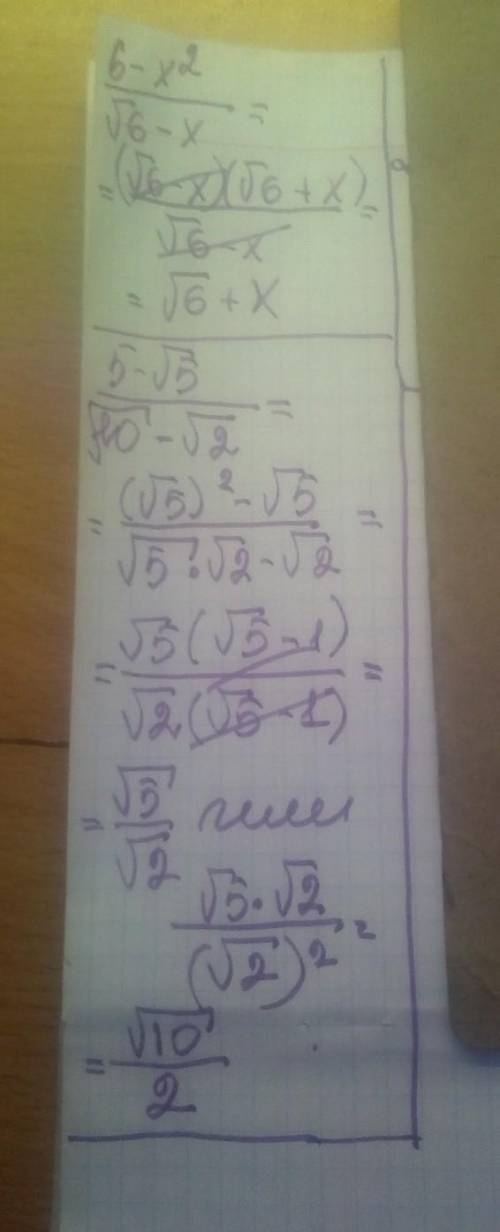 6-x²/√6-x =
= (√6-x)(√6+x)/√6-x =
= √6+x
5-√5/√10-√2 =
= (√5)²-√5/√5·√2-√2 =
= √5(√5-1)/√2(√5-1) =
= √5/√2 или
√5·√2/(√2)² =
= √10/2